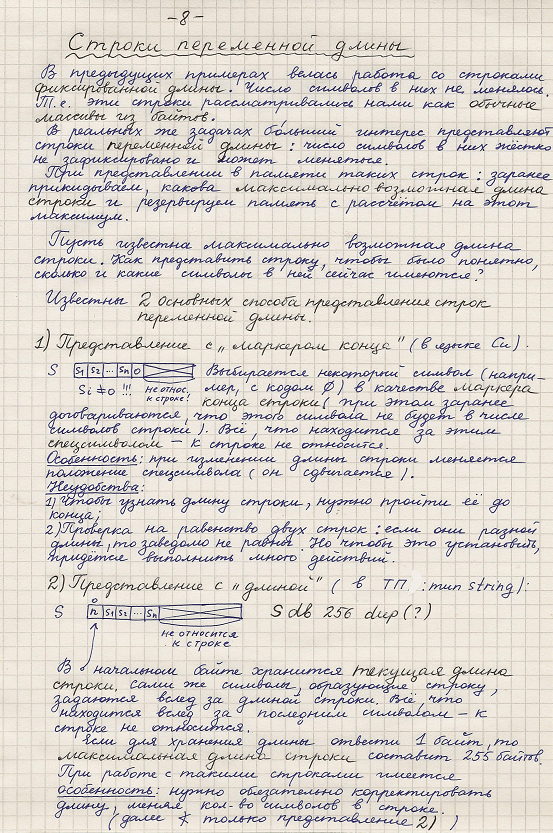 -8-
Строки переменной длины
В предыдущих примерах велась работа со строками
фиксированной длины. Число символов в них не менялось.
Т.е. эти строки рассматривались нами как обычные
массивы из байтов.
В реальных же задачах больший интерес представляют
строки переменной длины: число символов в них жёстко
не зафиксировано и может меняться.
При представлении в памяти таких строк: заранее
прикидываем, какова максимально возможная длина
строки и резервируем память с рассчётом на этот
максимум.
Пусть известна максимально возможная длина
строки. Как представить строку, чтобы было понятно,
сколько и какие символы в ней сейчас имеются?
Известны 2 основных способа представления строк
переменной длины.
1) Представление с „маркером конца" (в языке Си).
S S1 S2 ... Sn 0
Si ≠ 0 !!! не относ. к строке!
Выбирается некоторый символ (напри-
мер, с кодом 0) в качестве маркера
конца строки (при этом заранее
договариваются, что этого символа не будет в числе
символов строки). Всё, что находится за этим
спецсимволом – к строке не относится.
Особенность: при изменении длины строки меняется
положение спецсимвола (он сдвигается).
Неудобства:
1) Чтобы узнать длину строки, нужно пройти её до
конца;
2) Проверка на равенство двух строк: если они разной
длины, то заведомо не равны. Но чтобы это установить,
придётся выполнить много действий.
2) Представление с „длиной" (в ТП : тип string):
S n S1 S2 ... Sn S db 256 dup (?)
не относится
к строке
В начальном байте хранится текущая длина
строки. Сами же символы, образующие строку,
задаются вслед за длиной строки. Всё, что
находится вслед за последним символом – к
строке не относится.
Если для хранения длины отвести 1 байт, то
максимальная длина строки составит 255 байтов.
При работе с такими строками имеется
особенность: нужно обязательно корректировать
длину, меняя кол-во символов в строке.
(далее только представление 2)